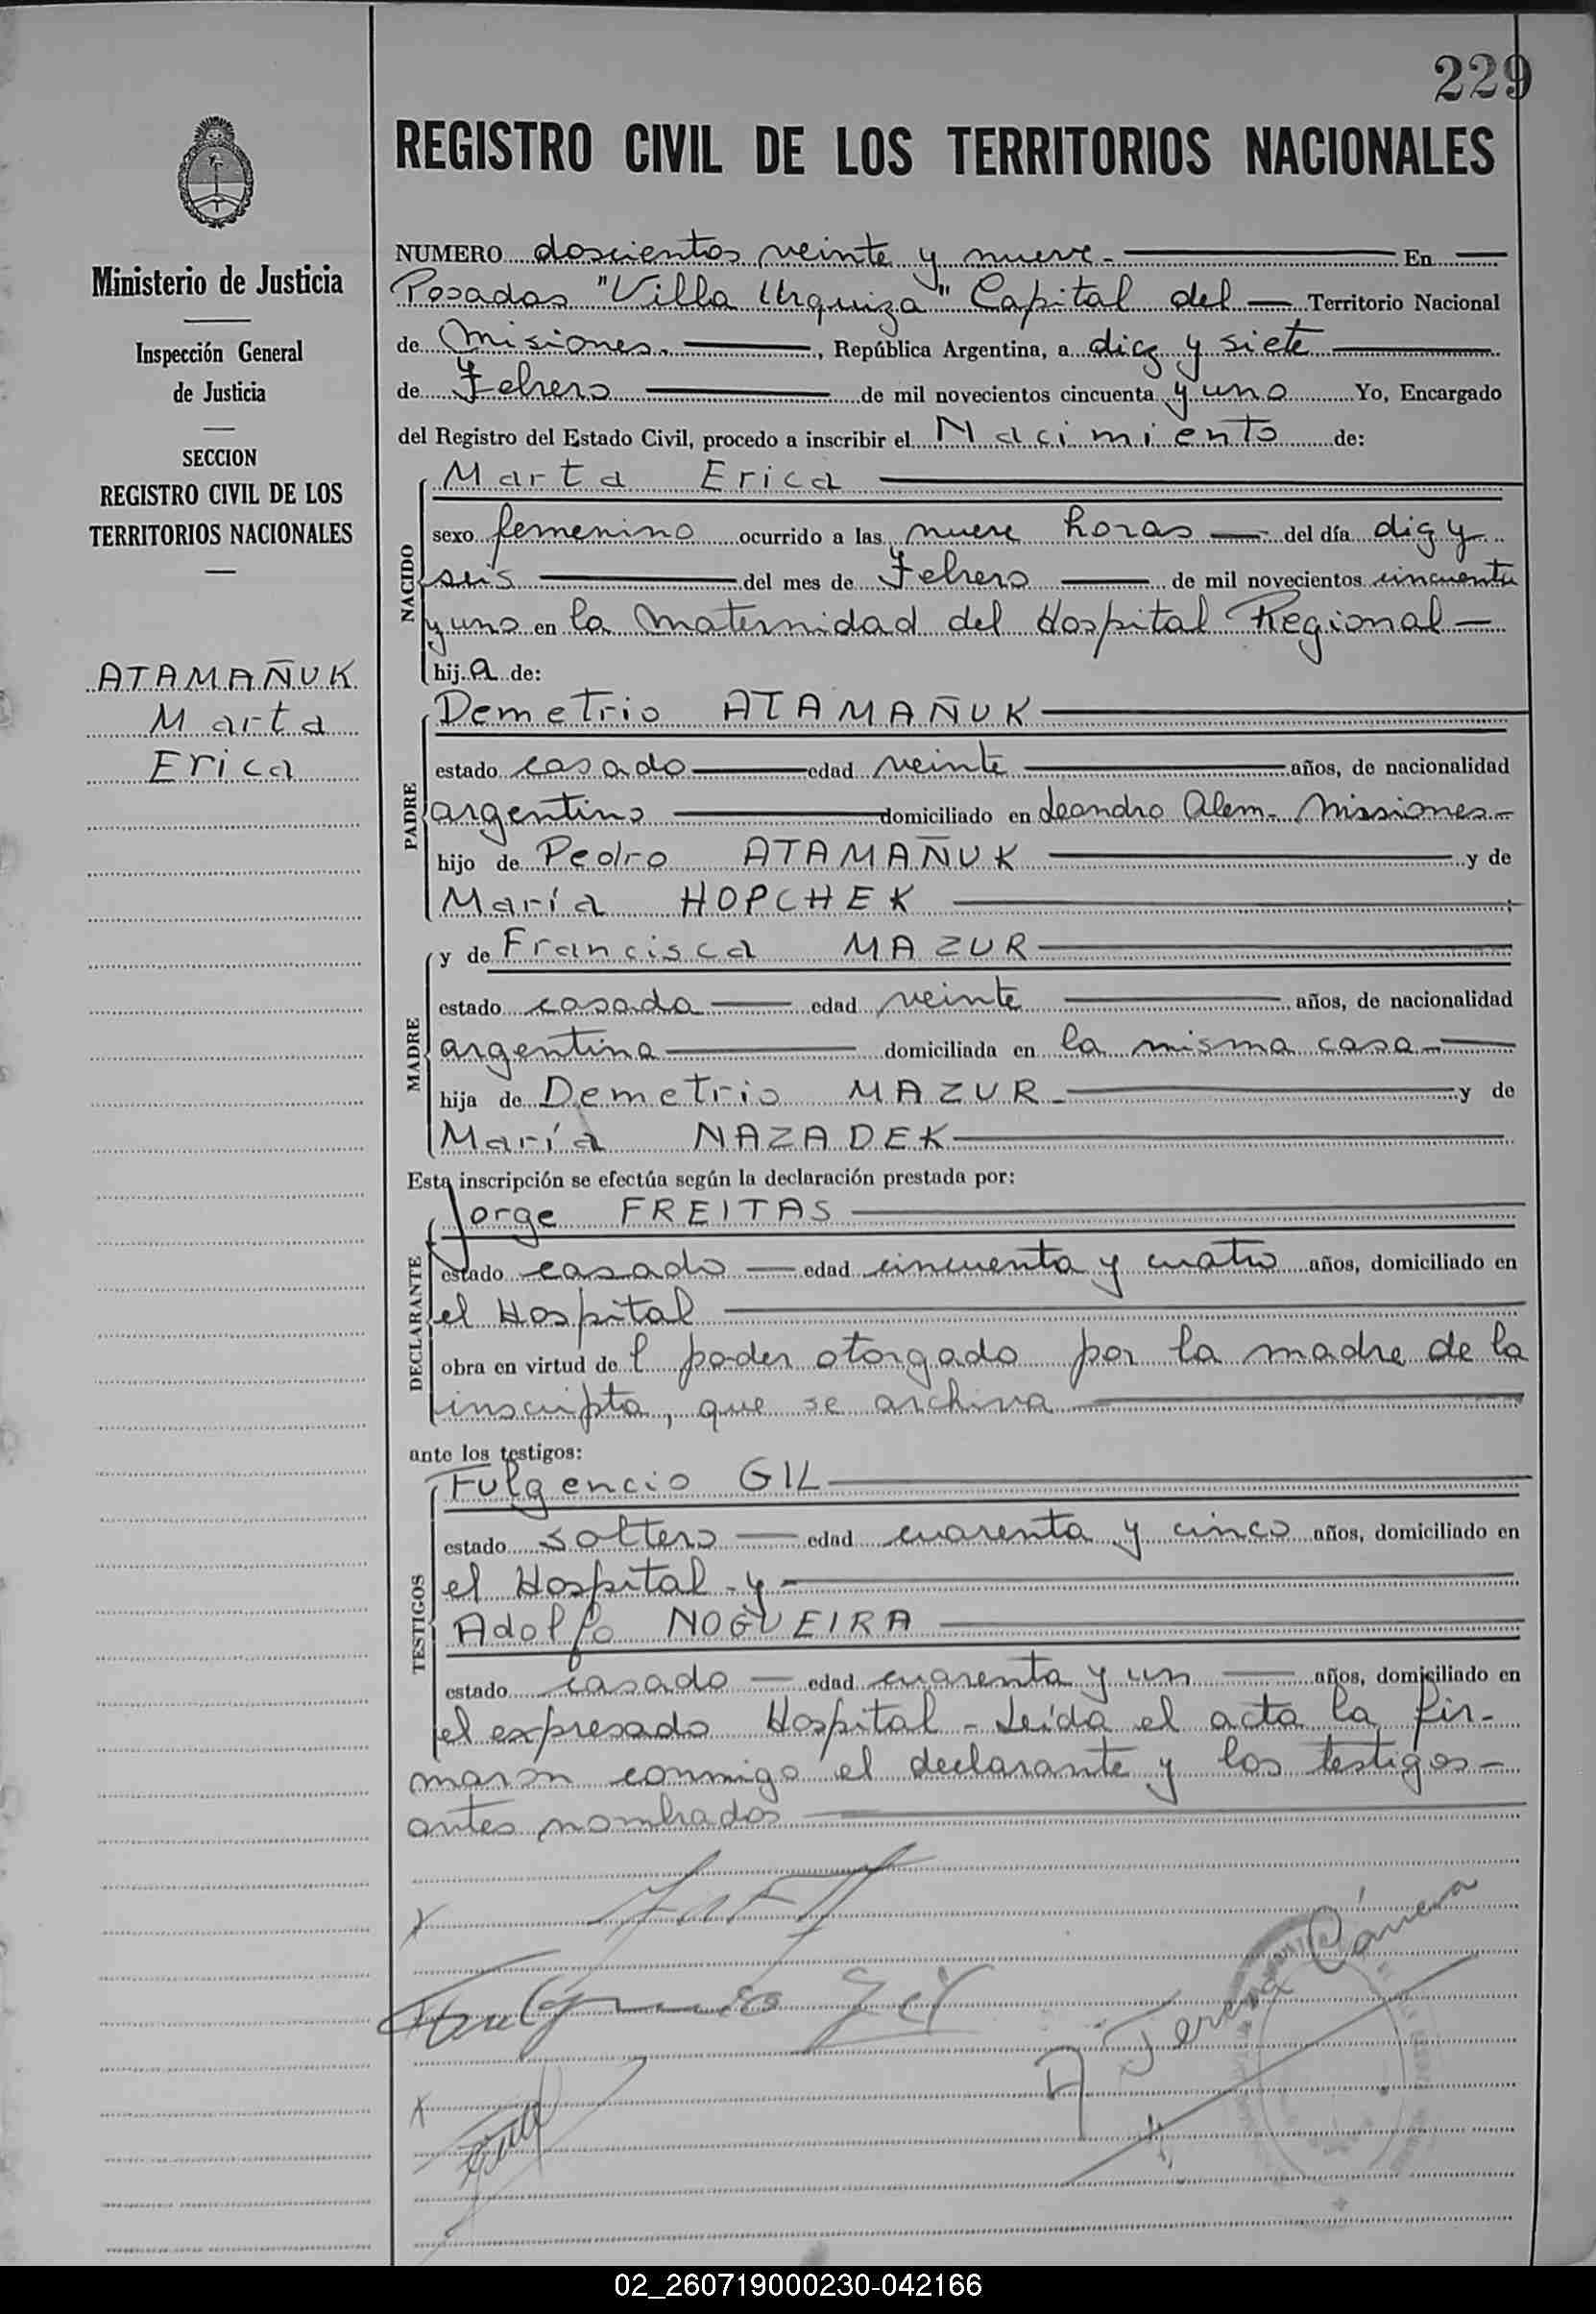 229
REGISTRO CIVIL DE LOS TERRITORIOS NACIONALES
Ministerio de Justicia
Inspección General
de Justicia
SECCION
REGISTRO CIVIL DE LOS
TERRITORIOS NACIONALES
ATAMAÑUK
Marta
Erica
NUMERO doscientos veinte y nueve.- En
Posadas "Villa Urquiza" Capital del Territorio Nacional
de Misiones., República Argentina, a diez y siete
de Febrero de mil novecientos cincuenta y uno Yo, Encargado
del Registro del Estado Civil, procedo a inscribir el Nacimiento de:
NACIDO
Marta Erica
sexo femenino ocurrido a las nueve horas del día diez y
seis del mes de Febrero de mil novecientos cincuenta
y uno en la Maternidad del Hospital Regional
hija de:
PADRE
Demetrio ATAMAÑUK
estado casado edad veinte años, de nacionalidad
argentino domiciliado en Leandro Alem- Missiones-
hijo de Pedro ATAMAÑUK y de
María HOPCHEK ;
MADRE
y de Francisca MAZUR
estado casada edad veinte años, de nacionalidad
argentina domiciliada en la misma casa
hija de Demetrio MAZUR- y de
María NAZADEK
Esta inscripción se efectúa según la declaración prestada por:
DECLARANTE
Jorge FREITAS
estado casado edad cincuenta y cuatro años, domiciliado en
el Hospital
obra en virtud del poder otorgado por la madre de la
inscripta, que se archiva
ante los testigos:
TESTIGOS
Fulgencio GIL
estado soltero edad cuarenta y cinco años, domiciliado en
el Hospital - y -
Adolfo NOGUEIRA
estado casado edad cuarenta y un años, domiciliado en
el expresado Hospital - Leída el acta la fir-
maron conmigo el declarante y los testigos-
antes nombrados
Fulgencio Gil
02_260719000230-042166